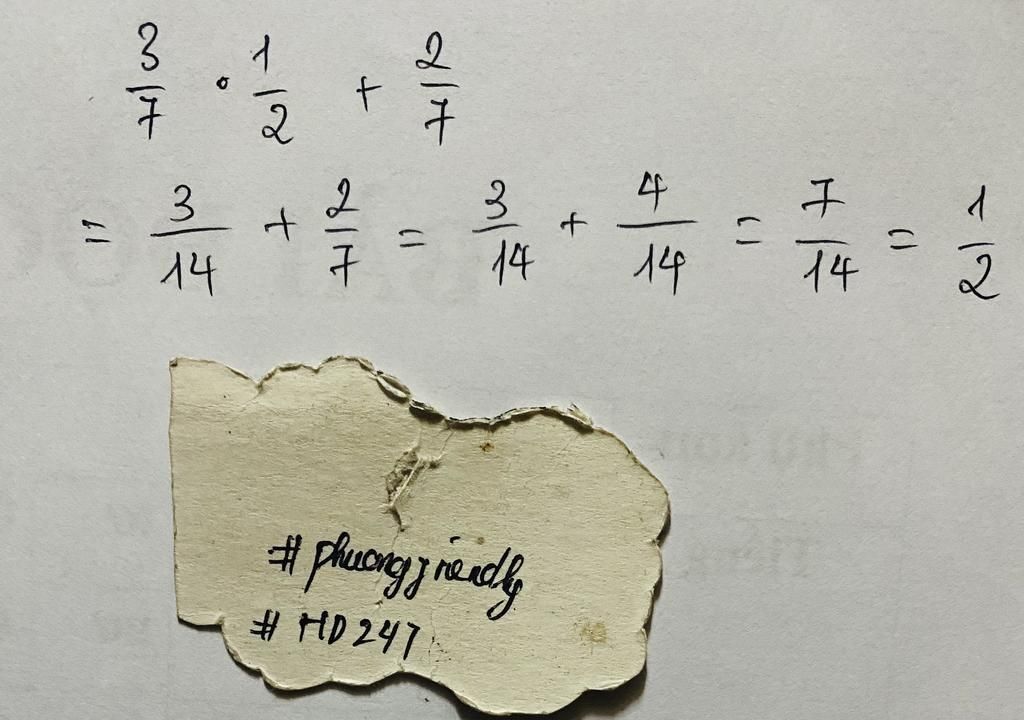 3/7 · 1/2 + 2/7
= 3/14 + 2/7 = 3/14 + 4/14 = 7/14 = 1/2
# phuongfriendly
# HD247